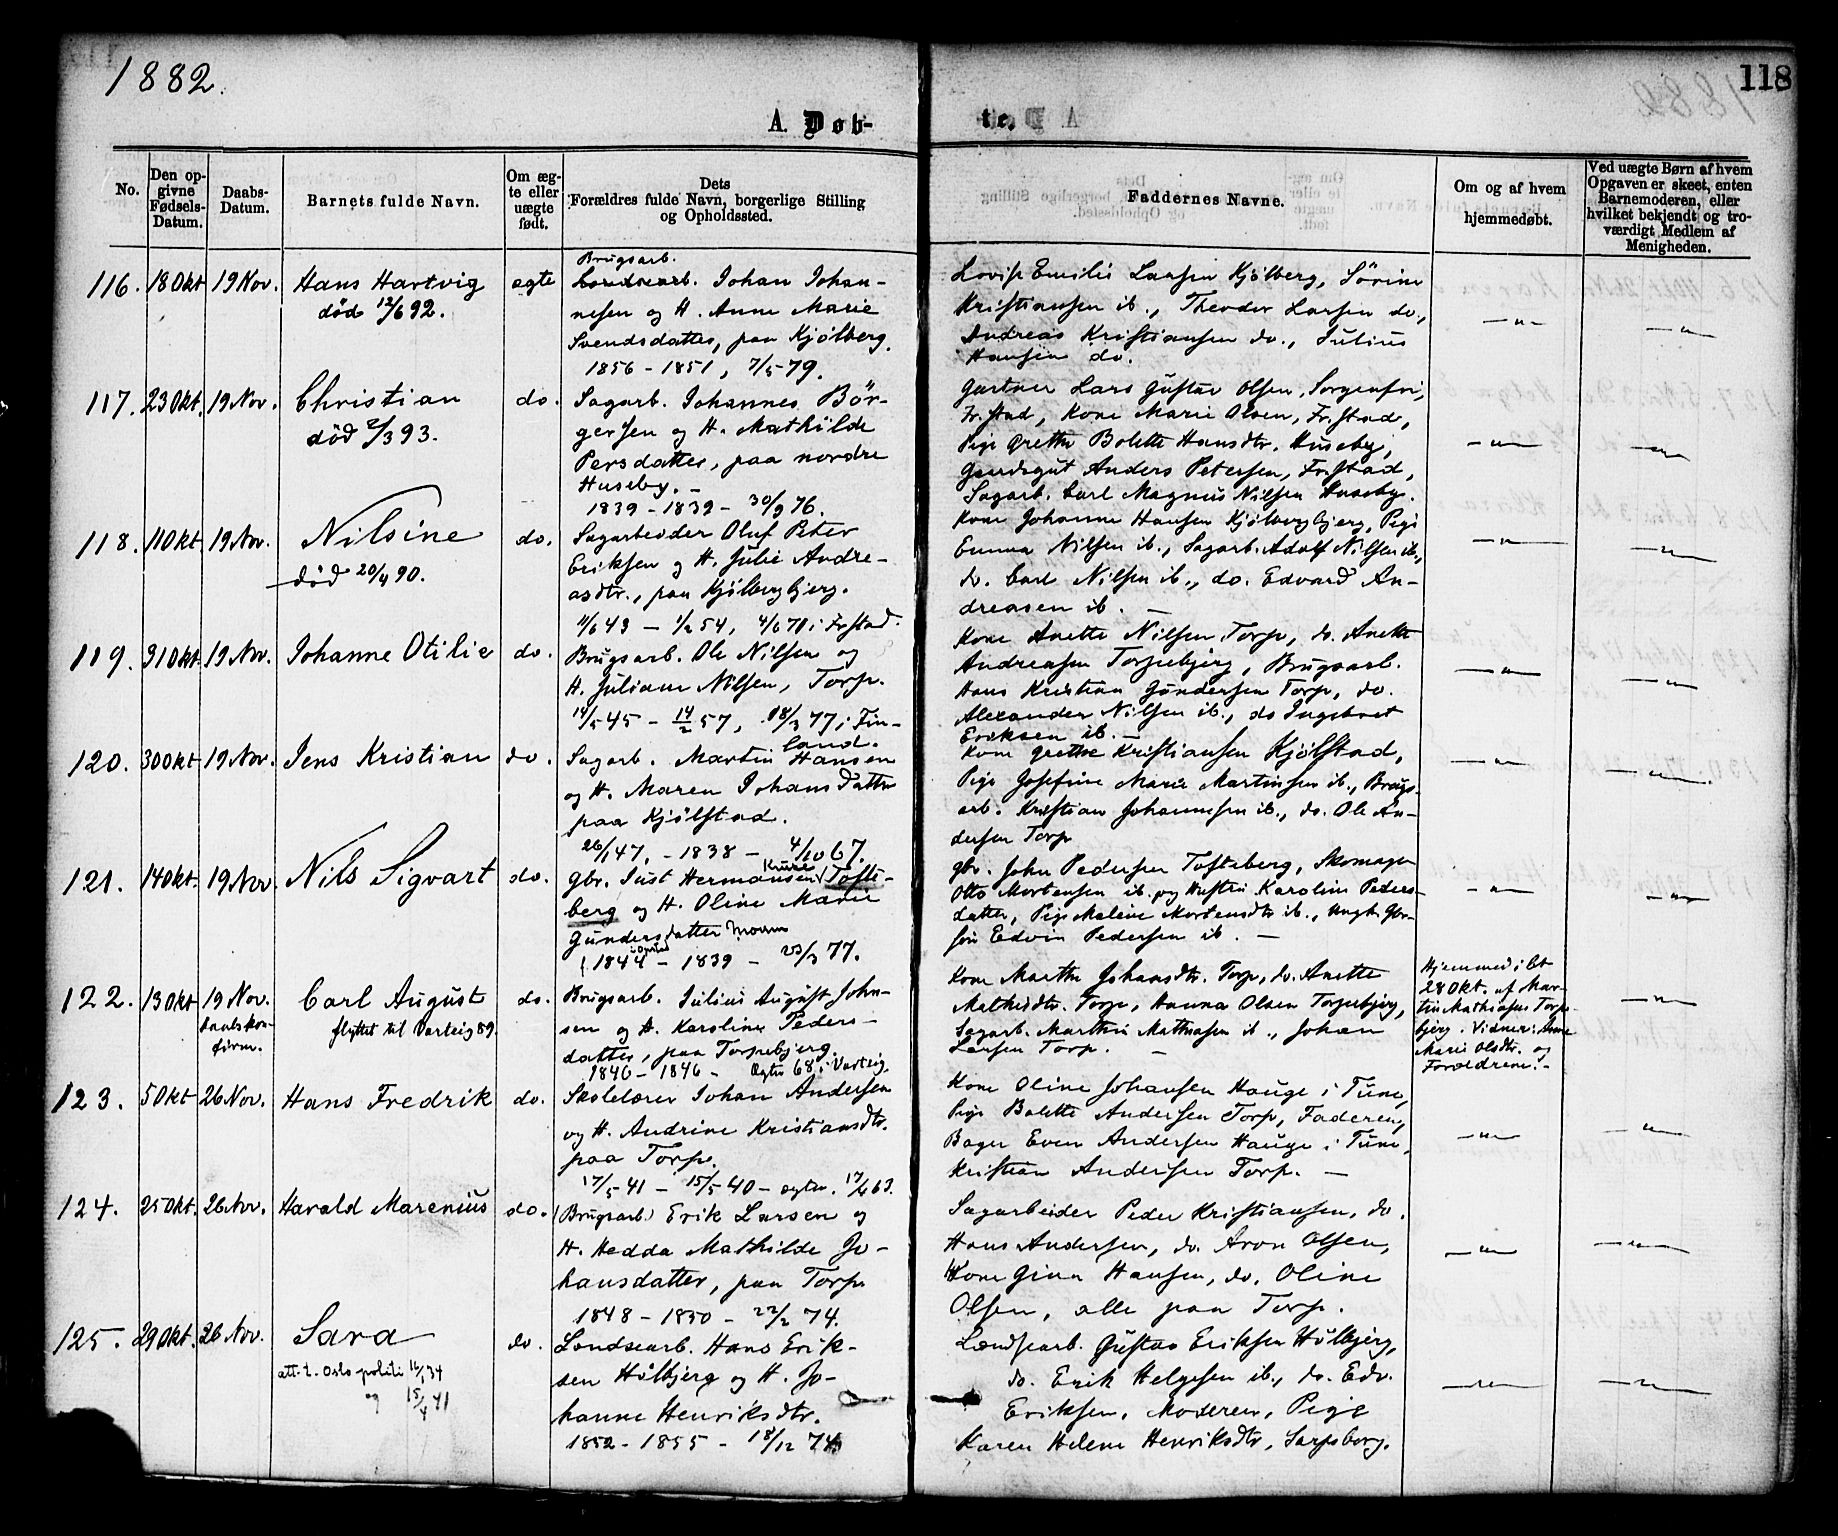 1882.
118
A. Døb-
te.
No.
Den op-
givne
Fødsels-
Datum.
Daabs-
Datum.
Barnets fulde Navn.
Om æg-
te eller
uægte
født.
Dets
Forældres fulde Navn, borgerlige Stilling
og Opholdssted.
Faddernes Navne.
Om og af hvem
hjemmedøbt.
Ved uægte Børn af hvem
Opgaven er skeet, enten
Barnemoderen, eller
hvilket bekjendt og tro-
værdigt Medlem af
Menigheden.
116. 18 Okt 19 Nov. Hans Hartvig ægte
død 12/6 92.
Brugsarb.
Johan Johan-
nesen og H. Anne Marie
Svendsdatter, paa Kjølberg.
1856 - 1851, 7/5 79.
Lovise Emilie Larsen Kjølberg, Sörine
Kristiansen ib., Theodor Larsen do.,
Andreas Kristiansen do., Julius
Hansen do.
— " —
— " —
117. 23 Okt. 19 Nov. Christian do.
død 2/3 93.
Sagarb. Johannes Bör-
gersen og H. Mathilde
Persdatter, paa nordre
Huseby. -
1839 - 1839 - 30/9 76.
Gartner Lars Gustav Olsen, Sorgenfri,
Fr.stad, Kone Marie Olsen, Fr.stad,
Pige Grethe Bolette Hansdtr. Huseby,
Gaardsgut Anders Petersen, Fr.stad,
Sagarb. Carl Magnus Nilsen Huseby.
— " —
— " —
118. 11 Okt 19 Nov. Nilsine do.
død 20/4 90.
Sagarbeider Oluf Peter
Eriksen og H. Julie Andre-
asdtr., paa Kjølbergbjerg.
11/6 43 — 1/2 54, 4/6 71 i Fr.stad.
Kone Johanne Hansen Kjølbergbjerg, Pige
Emma Nilsen ib., Sagarb. Adolf Nilsen ib.,
do. Carl Nilsen ib., do. Edvard An-
dreasen ib. —
— " —
— " —
119. 31 Okt. 19 Nov. Johanne Otilie do.
Brugsarb. Ole Nilsen og
H. Juliane Nilsen, Torp.
14/5 45 - 14/2 57, 18/3 77 i Fin-
land.
Kone Anette Nilsen Torp, do. Anette
Andreasen Torpebjerg, Brugsarb.
Hans Kristian Gundersen Torp, do.
Alexander Nilsen ib., do Ingebret
Eriksen ib. —
— " —
— " —
120. 30 Okt 19 Nov. Jens Kristian do.
Sagarb. Martin Hansen
og H. Maren Johansdatter
paa Kjølstad.
26/1 47. - 1838 - 4/10 67.
Kone Grethe Kristiansen Kjølstad,
Pige Josefine Marie Martinsen ib., Brugs-
arb. Kristian Johannesen ib., do. Ole An-
dersen Torp
— " —
— " —
121. 14 Okt. 19 Nov. Nils Sigvart do.
Gbr. Just Hermansen Tofte-
berg og H. Oline Marie
Gundersdatter
1844 - 1839 - 23/3 77.
Gbr. John Pedersen Tofteberg, Skomager
Otto Mortensen ib. og Hustru Karoline Peders-
datter, Pige Maline Mortensdtr ib., Ungk. Gbr-
søn Edvin Pedersen ib. —
— " —
— " —
122. 13 Okt 19 Nov. Carl August do.
Daabskon-
firm.
flyttet til Varteig 89.
Brugsarb. Julius August John-
sen og H. Karoline Peders-
datter, paa Torpebjerg.
1840 - 1846 - Ægtev 68 i Varteig.
Kone Marthe Johansdtr. Torp, do. Anette
Mathisdtr. Torp, Hanna Olsen Torpebjerg,
Sagarb. Marthin Mathiasen ib., Johan
Larsen Torp. —
Hjemmedöbt
28 Okt. af Mar-
tin Mathiasen Torpe-
bjerg. Vidner: Anne
Marie Olsdtr. og
Forældrene. -
— " —
123. 5 Okt 26 Nov. Hans Fredrik do.
Skolelærer Johan Andersen
og H. Andrine Kristiansdtr.
paa Torp.
17/5 41 - 15/5 40 - ægtev. 17/4 63.
Kone Oline Johansen Hauge i Tune,
Pige Bolette Andersen Torp, Faderen,
Bager Even Andersen Hauge i Tune,
Kristian Andersen Torp. —
— " —
— " —
124. 25 Okt. 26 Nov. Harald Marenius do.
(Brugsarb) Erik Larsen og
H. Hedda Mathilde Jo-
hansdatter, paa Torp
1848 - 1850 - 22/2 74.
Sagarbeider Peder Kristiansen, do.
Hans Andersen, do. Aron Olsen,
Kone Gina Hansen, do. Oline
Olsen, alle paa Torp.
— " —
— " —
125. 29 Okt. 26 Nov. Sara do.
att. t. Oslo politi 16/1 34
og 15/4 41
Landsearb. Hans Erik-
sen Hölbjerg og H. Jo-
hanne Henriksdtr.
1852 - 1855 - 18/12 74
Landsearb. Gustav Eriksen Hölbjerg,
do. Erik Helgesen ib., do. Edv.
Eriksen, Moderen, Pige
Karen Helene Henriksdtr, Sarpsborg.
— " —
— " —